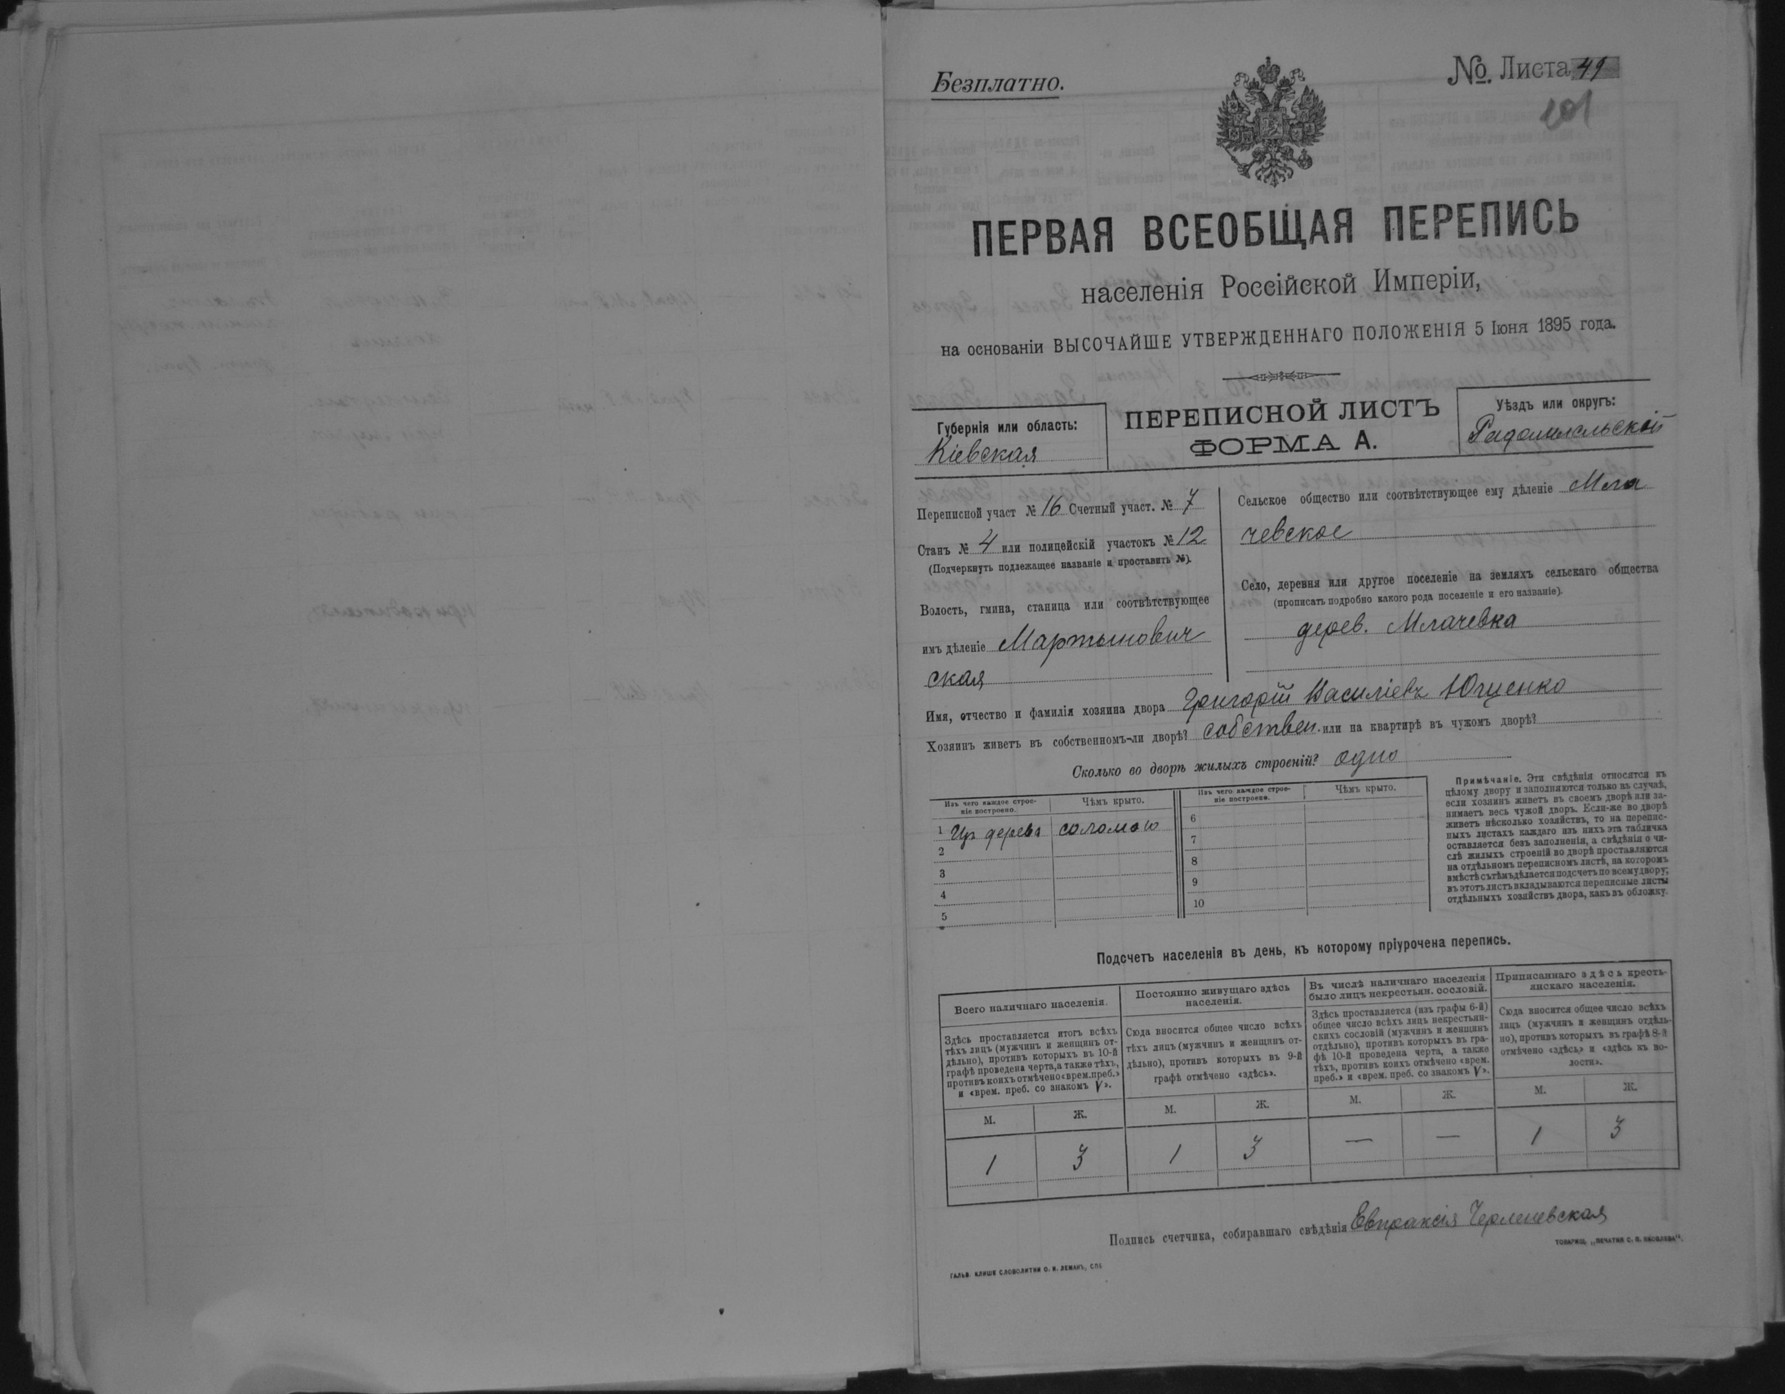 Безплатно.
№ Листа 41
101
ПЕРВАЯ ВСЕОБЩАЯ ПЕРЕПИСЬ
населенія Россійской Имперіи,
на основаніи ВЫСОЧАЙШЕ УТВЕРЖДЕННАГО ПОЛОЖЕНІЯ 5 Іюня 1895 года.
Губернія или область:
Кіевская
ПЕРЕПИСНОЙ ЛИСТЪ
ФОРМА А.
Уѣздъ или округъ:
Радомысльскій
Переписной участ № 16 Счетный участ. № 7
Станъ № 4 или полицейскій участокъ № 12
(Подчеркнуть подлежащее названіе и проставить №).
Волость, гмина, станица или соотвѣтствующее
имъ дѣленіе Мартынович
ская
Сельское общество или соотвѣтствующее ему дѣленіе Мла
чевское
Село, деревня или другое поселеніе на земляхъ сельскаго общества
(прописать подробно какого рода поселеніе и его названіе).
дерев. Млачевка
Имя, отчество и фамилія хозяина двора Григорій Василіевъ Ющенко
Хозяинъ живетъ въ собственномъ-ли дворѣ? собствен. или на квартирѣ въ чужомъ дворѣ?
Сколько во дворѣ жилыхъ строеній? одно
Изъ чего каждое строе-
ніе построено.
Чѣмъ крыто.
Изъ чего каждое строе-
ніе построено.
Чѣмъ крыто.
1 Изъ дерева соломою
2
3
4
5
6
7
8
9
10
Примѣчаніе. Эти свѣдѣнія относятся къ
цѣлому двору и заполняются только въ случаѣ,
если хозяинъ живетъ въ своемъ дворѣ или за-
нимаетъ весь чужой дворъ. Если-же во дворѣ
живетъ нѣсколько хозяйствъ, то на перепис-
ныхъ листахъ каждаго изъ нихъ эта табличка
оставляется безъ заполненія, а свѣдѣнія о чи-
слѣ жилыхъ строеній во дворѣ проставляются
на отдѣльномъ переписномъ листѣ, на которомъ
вмѣстѣ съ тѣмъ дѣлается подсчетъ по всему двору;
въ этотъ листъ вкладываются переписные листы
отдѣльныхъ хозяйствъ двора, какъ въ обложку.
Подсчетъ населенія въ день, къ которому пріурочена перепись.
Всего наличнаго населенія.
Здѣсь проставляется итогъ всѣхъ
тѣхъ лицъ (мужчинъ и женщинъ от-
дѣльно), противъ которыхъ въ 10-й
графѣ проведена черта, а также тѣхъ,
противъ коихъ отмѣчено «врем. преб.»
и «врем. преб. со знакомъ V».
Постоянно живущаго здѣсь
населенія.
Сюда вносится общее число всѣхъ
тѣхъ лицъ (мужчинъ и женщинъ от-
дѣльно), противъ которыхъ въ 9-й
графѣ отмѣчено «здѣсь».
Въ числѣ наличнаго населенія
было лицъ некрестьян. сословій.
Здѣсь проставляется (изъ графы 6-й)
общее число всѣхъ лицъ некрестьян-
скихъ сословій (мужчинъ и женщинъ
отдѣльно), противъ которыхъ въ гра-
фѣ 10-й проведена черта, а также
тѣхъ, противъ коихъ отмѣчено «врем.
преб.» и «врем. преб. со знакомъ V».
Приписаннаго здѣсь кресть-
янскаго населенія.
Сюда вносится общее число всѣхъ
лицъ (мужчинъ и женщинъ отдѣль-
но), противъ которыхъ въ графѣ 8-й
отмѣчено «здѣсь» и «здѣсь въ во-
лости».
М. Ж. М. Ж. М. Ж. М. Ж.
1 3 1 3 — — 1 3
Подпись счетчика, собиравшаго свѣдѣнія Евпраксія
ГАЛЬВ. КЛИШЕ СЛОВОЛИТНИ О. И. ЛЕМАНЪ, СПБ.
ТОВАРИЩ. „ПЕЧАТНЯ С. П. ЯКОВЛЕВА".